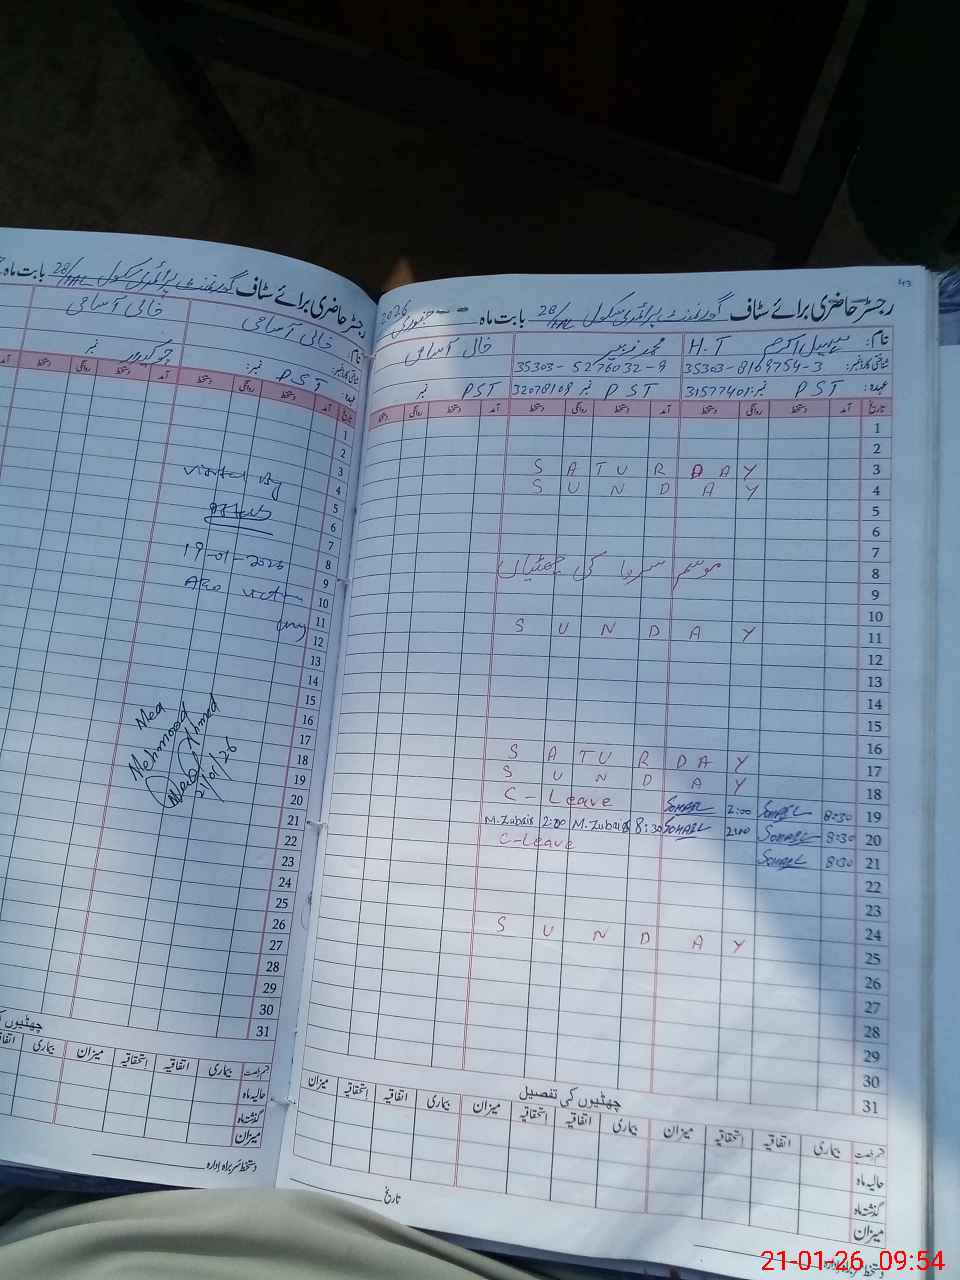 43
رجسٹر حاضری برائے سٹاف گورنمنٹ پرائمری سکول 28/ML بابت ماہ -- جنوری 2026
نام: سہیل اکرم H.T محمد زبیر خالی آسامی
شناختی کارڈ نمبر: 35303-8169754-3 35303-5276032-9
عہدہ: PST نمبر: 31577401 PST نمبر 32078109 PST نمبر
تاریخ آمد دستخط روانگی دستخط آمد دستخط روانگی دستخط آمد دستخط روانگی دستخط
1
2
3 SATURDAY
4 SUNDAY
5
6
7
8 موسم سرما کی چھٹیاں
9
10
11 SUNDAY
12
13
14
15
16
17 SATURDAY
18 SUNDAY
19 8:30 SOHAIL 2:00 SOHAIL C-Leave
20 8:30 SOHAIL 2:00 SOHAIL 8:30 M.Zubair 2:00 M.Zubair
21 8:30 SOHAIL C-Leave
22
23
24
25 SUNDAY
26
27
28
29
30
31
چھٹیوں کی تفصیل
قسم رخصت بیماری اتفاقیہ استحقاقیہ میزان بیماری اتفاقیہ استحقاقیہ میزان بیماری اتفاقیہ استحقاقیہ میزان
حالیہ ماہ
گذشتہ ماہ
میزان
دستخط سربراہ ادارہ
تاریخ
رجسٹر حاضری برائے سٹاف گورنمنٹ پرائمری سکول 28/ML بابت ماہ
نام: خالی آسامی خالی آسامی
شناختی کارڈ نمبر:
PST نمبر: چوکیدار نمبر
تاریخ آمد دستخط روانگی دستخط آمد دستخط روانگی دستخط
1
2
3
4
5
6
7
8
9
10
11
12
13
14
15
16
17
18
19
20
21
22
23
24
25
26
27
28
29
30
31
Visited By
19-01-2026
Mea
Mehmood
Ahmed
21/01/26
قسم رخصت بیماری اتفاقیہ استحقاقیہ میزان بیماری
حالیہ ماہ
گذشتہ ماہ
میزان
دستخط سربراہ ادارہ
21-01-26 09:54